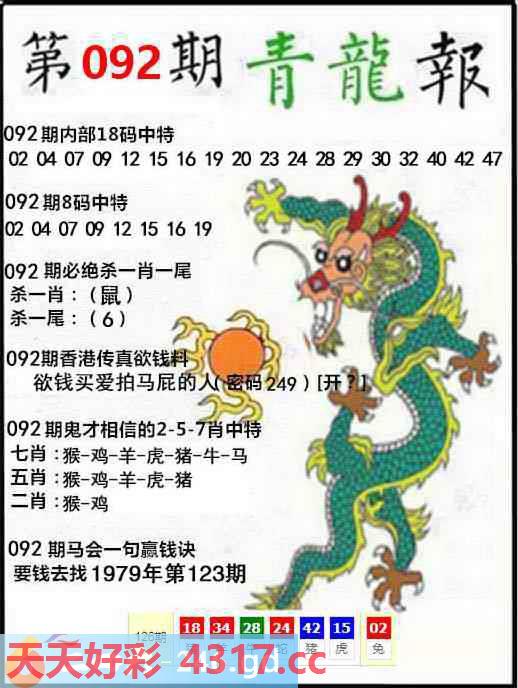 第092期 青龍報
092期内部18码中特
02 04 07 09 12 15 16 19 20 23 24 28 29 30 32 40 42 47
092期8码中特
02 04 07 09 12 15 16 19
092 期必绝杀一肖一尾
杀一肖：（鼠）
杀一尾：（6）
092期香港传真欲钱料
欲钱买爱拍马屁的人（密码249）[开？]
092期鬼才相信的2-5-7肖中特
七肖：猴-鸡-羊-虎-猪-牛-马
五肖：猴-鸡-羊-虎-猪
二肖：猴-鸡
092 期马会一句赢钱诀
要钱去找1979年第123期
18 34 28 24 42 15 02
蛇 猪 虎 兔
天天好彩 4317.cc